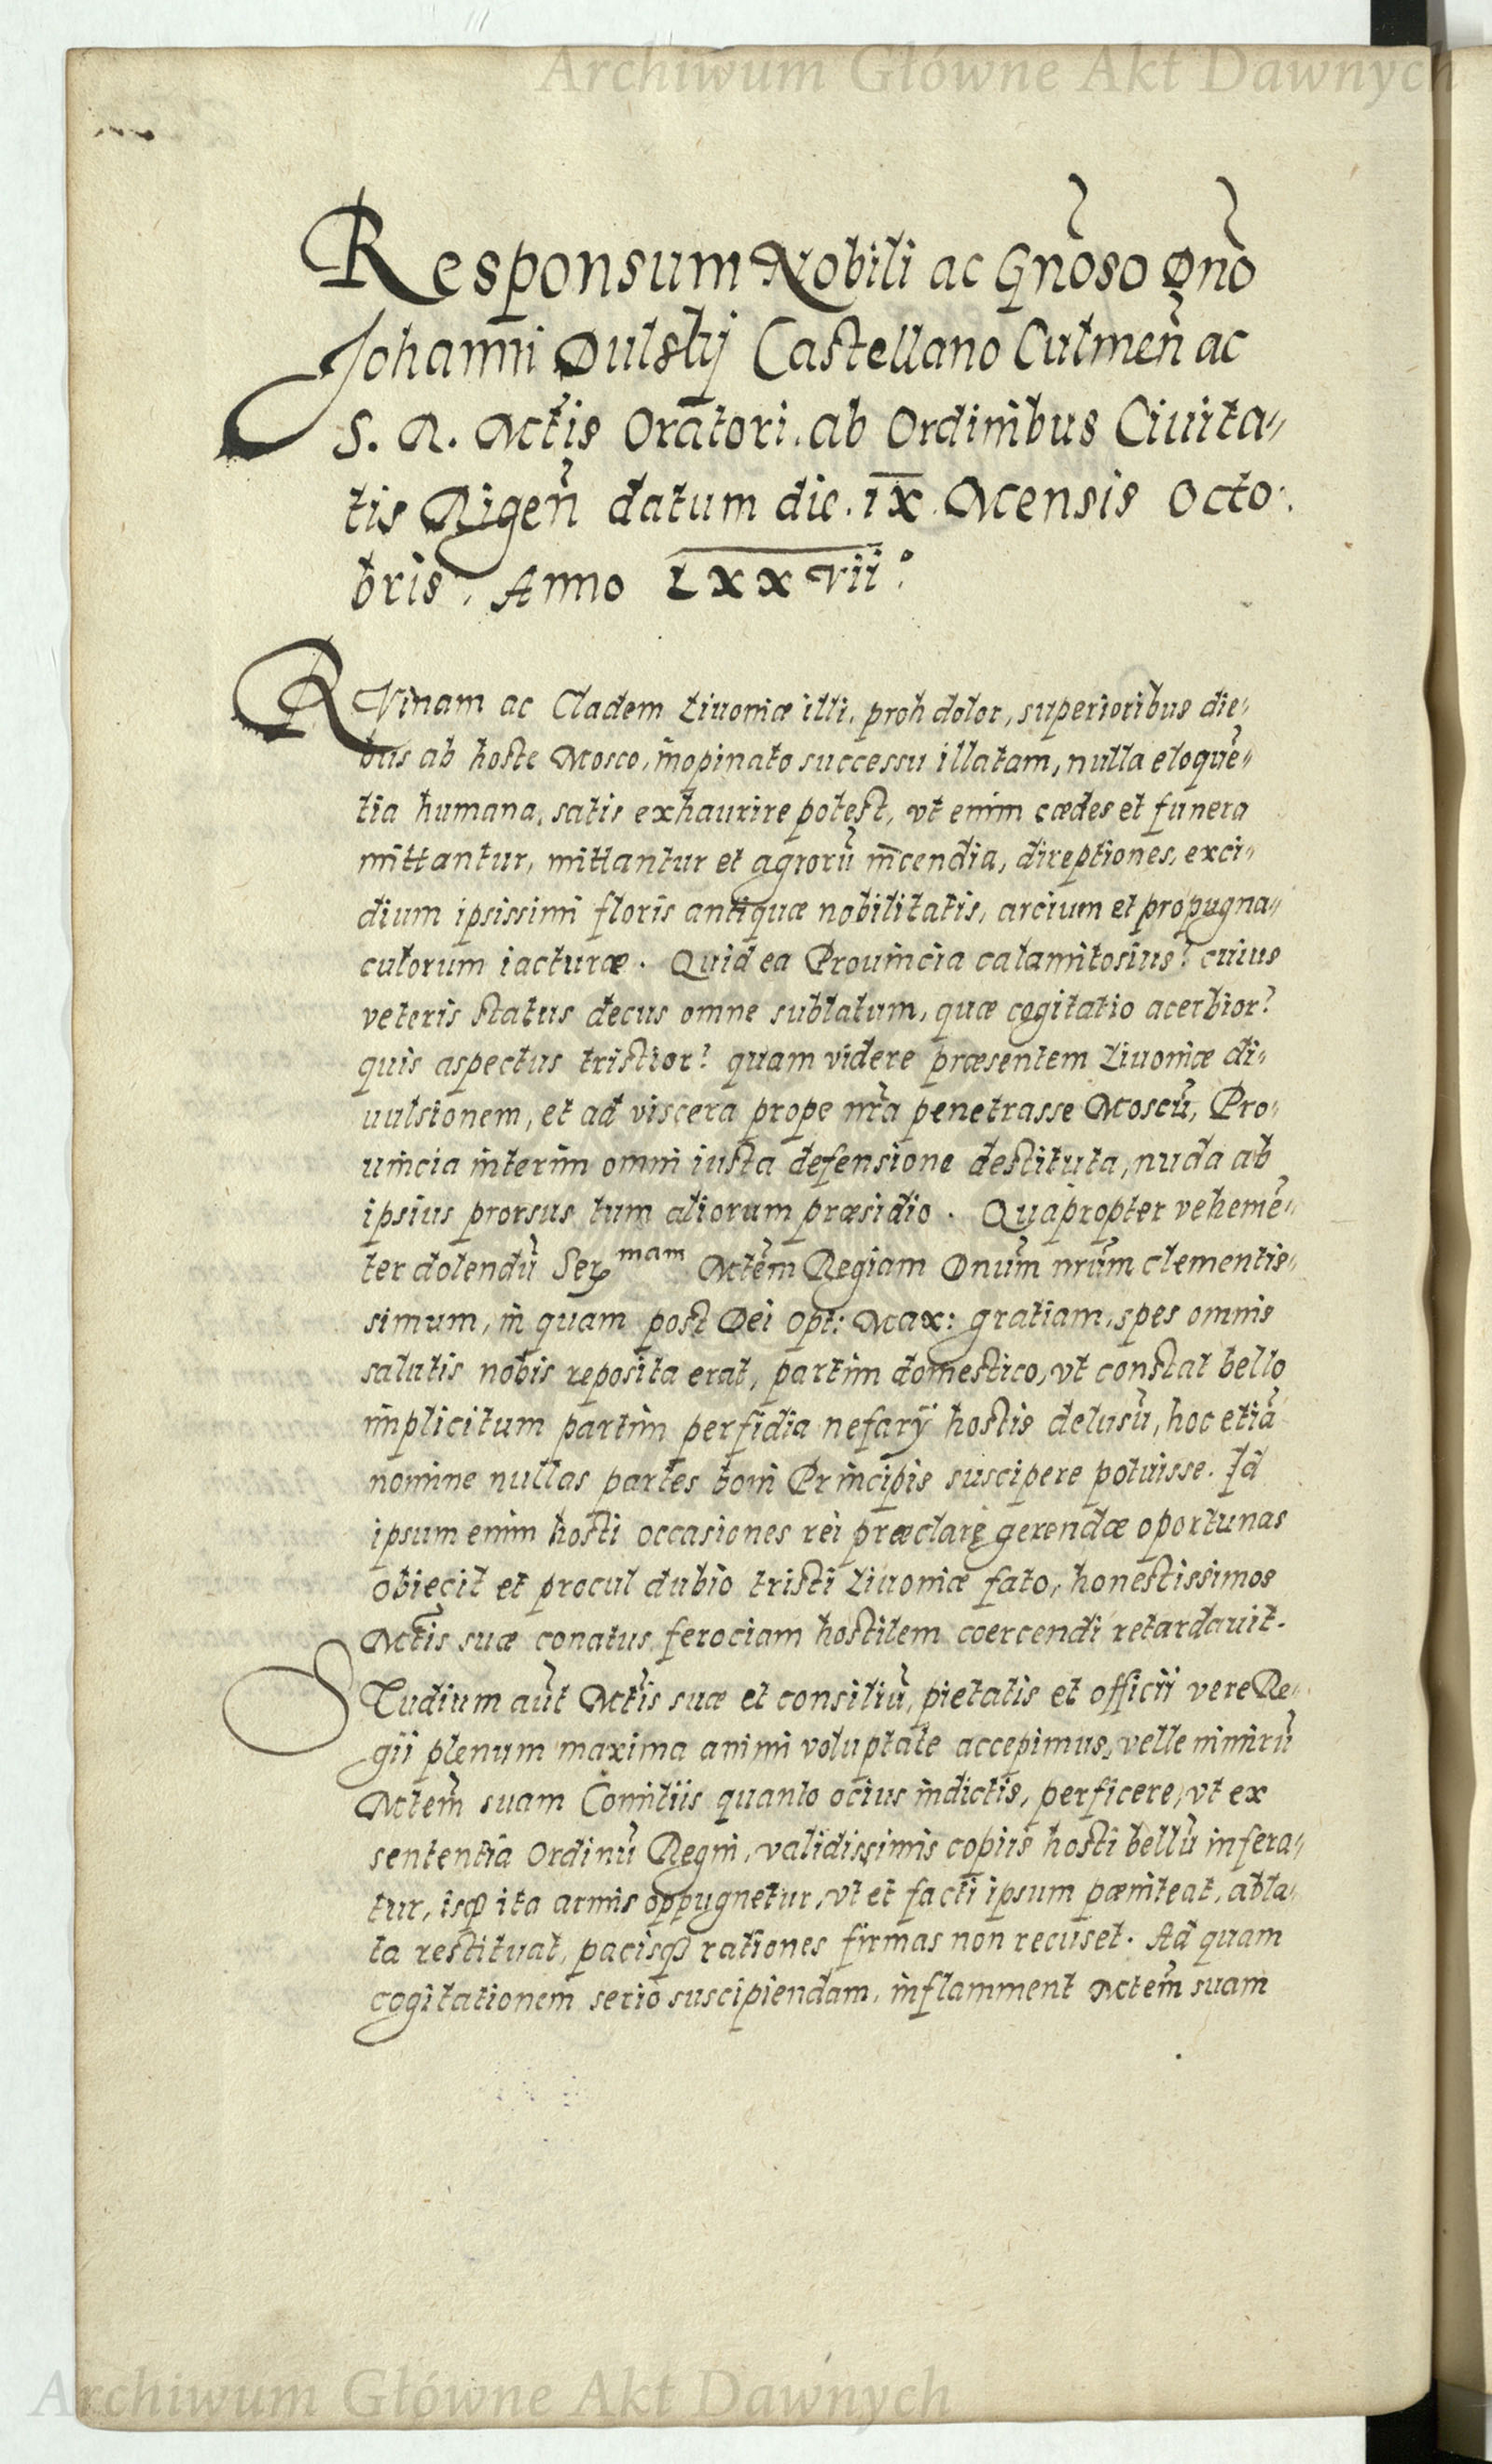 Archiwum Główne Akt Dawnych
Responsum Nobili ac Gñoso Dño
Johanni Dulsky Castellano Culmeñ ac
S. R. Mctis Oratori. ab Ordinibus Ciuita„
tis Rigeñ datum die. ix. Mensis Octo:
bris. Anno Lxxvii°.
RVinam ac Cladem Liuoniæ illi, proh dolor, superioribus die„
bus ab hoste Mosco, inopinato successu illatam, nulla eloquē„
tia humana, satis exhaurire potest, vt enim cædes et funera
mittantur, mittantur et agrorū incendia, direptiones, exci„
dium ipsissimi floris antiquæ nobilitatis, arcium et propugna„
culorum iacturæ. Quid ea Prouincia calamitosius? cuius
veteris status decus omne sublatum, quæ cogitatio acerbior?
quis aspectus tristior? quam videre præsentem Liuoniæ di„
uulsionem, et ad viscera prope nr̄a penetrasse Moscū, Pro„
uincia interim omni iusta defensione destituta, nuda ab
ipsius prorsus tum aliorum præsidio. Quapropter vehemē„
ter dolendū Ser mam Mctēm Regiam Dnūm nrūm clementis„
simum, in quam post Dei Opt: Max: gratiam, spes omnis
salutis nobis reposita erat, partim domestico, vt constat bello
implicitum partim perfidia nefarÿ hostis delusū, hoc etiā
nomine nullas partes boni Principis suscipere potuisse. Id
ipsum enim hosti occasiones rei præclarę gerendæ oportunas
obiecit et procul dubio tristi Liuoniæ fato, honestissimos
Mctis suæ conatus ferociam hostilem coercendi retardauit.
STudium aūt Mctis suæ et consiliū, pietatis et officii vere Re„
gii plenum maxima animi voluptate accepimus, velle nimirū
Mctem̄ suam Comitiis quanto ocius indictis, perficere, vt ex
sententia Ordinū Regni, validissimis copiis hosti bellū infera„
tur, isq̃ ita armis oppugnetur, vt et facti ipsum pæniteat, abla„
ta restituat, pacisq̃ rationes firmas non recuset. Ad quam
cogitationem serio suscipiendam, inflamment Mctem̄ suam
Archiwum Główne Akt Dawnych